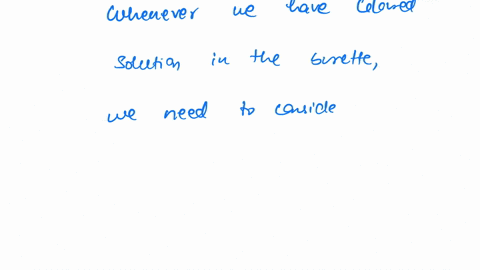 Whenever we have coloured
solution in the burette,
we need to conside